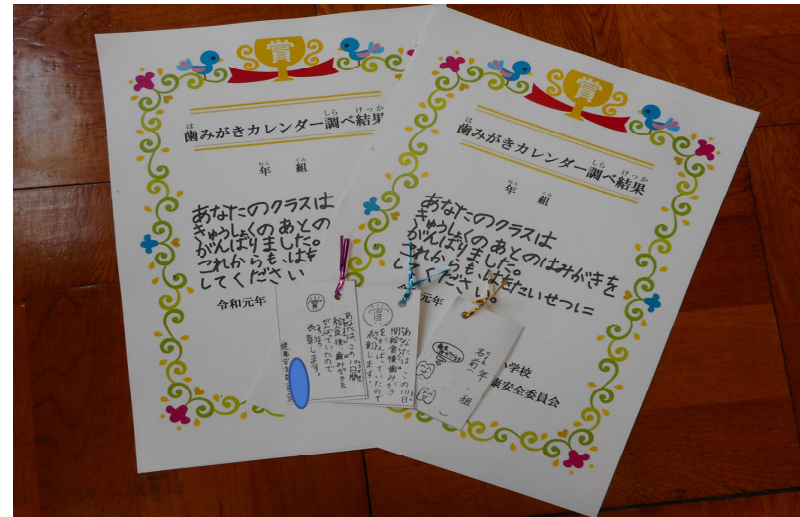 賞
歯みがきカレンダー調べ結果
年 組
あなたのクラスは
きゅうしょくのあとの
がんばりました。
これからも、はを
してください
令和元年
賞
歯みがきカレンダー調べ結果
年 組
あなたのクラスは
きゅうしょくのあとのはみがきを
がんばりました。
これからも、はをたいせつに
してください。
元年
小学校
康安全委員会
賞
あなたは、この10日間
給食後、歯みがきを
がんばっていたので
表彰します。
賞
あなたは、この10日
間給食後歯みがき
をがんばっていたので
表彰します。
年 組
名前